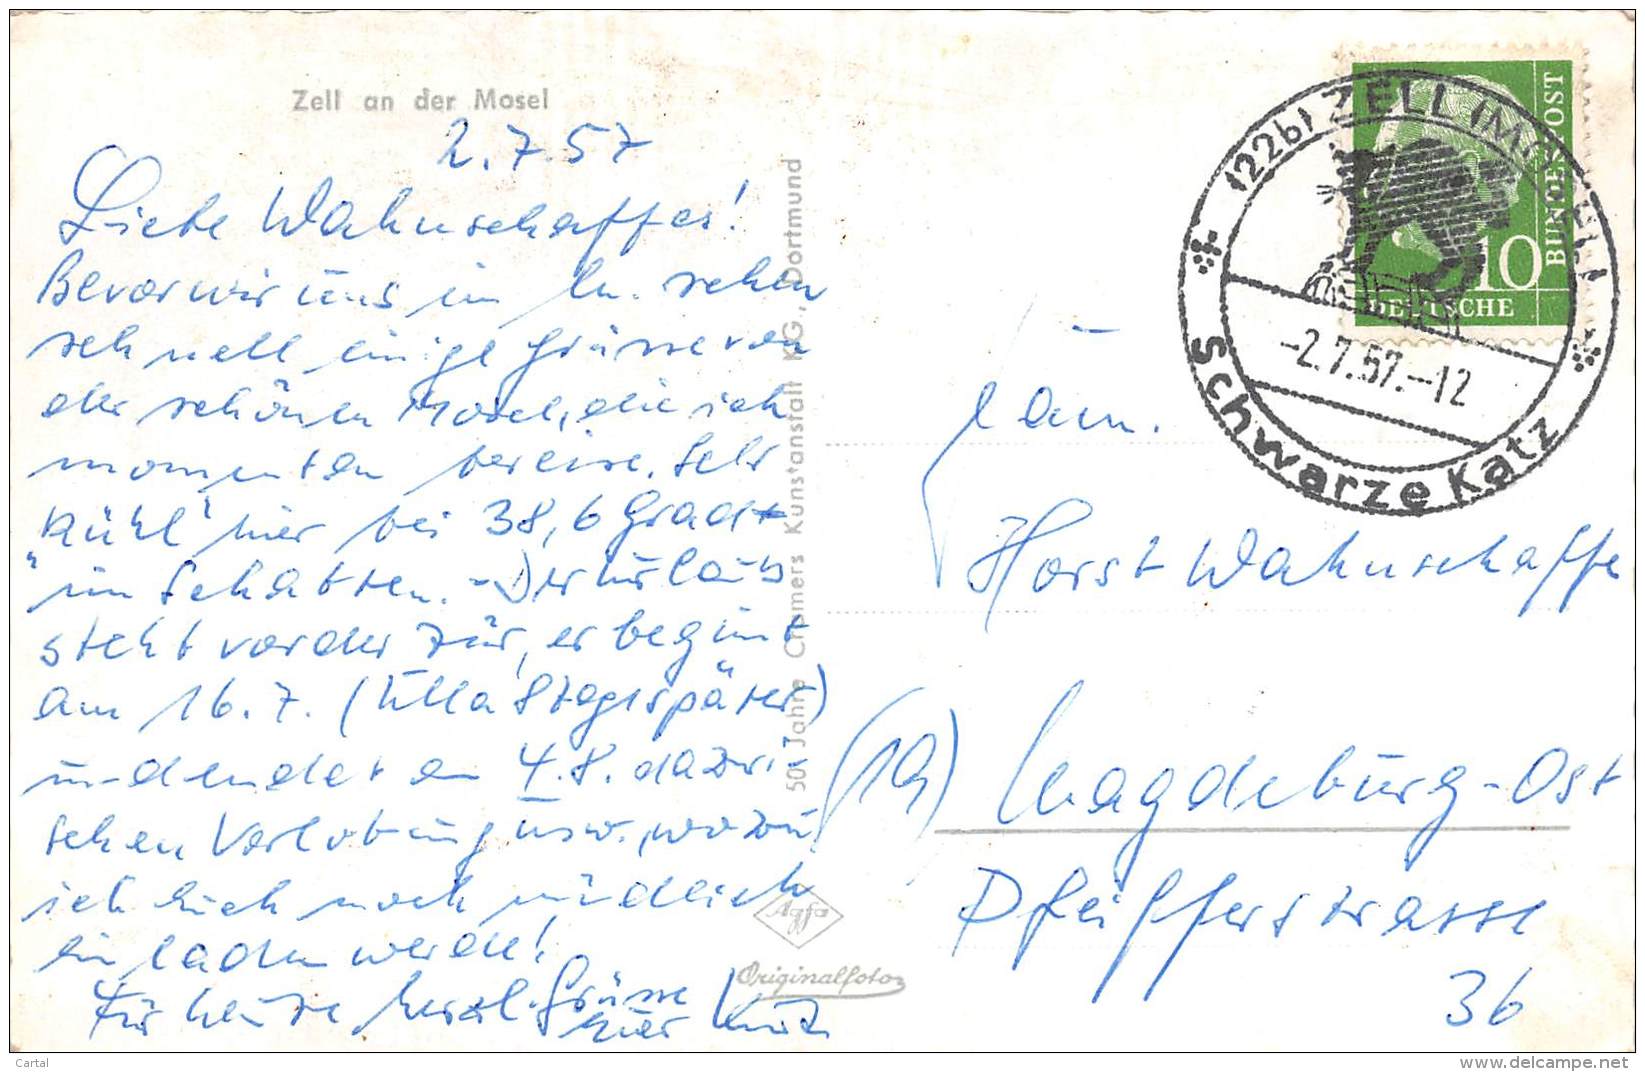 Zell an der Mosel
2.7.57
Liebe Wahnschaffes!
Bevor wir uns in Lu. sehen
schnell einige Grüsse von
der schönen Mosel, die ich
momentan bereise. Sehr
"kühl" hier bei 38,6 Grad
im Schatten. - Der Urlaub
steht vor der Tür, er beginnt
am 16.7. (Ulla 8 Tage später)
und endet am 4.8. dazwi-
schen Verlobung usw., wozu
ich Euch noch mündlich
einladen werde!
Für heute herzl. Grüsse
Euer Kurt
50 Jahre Cramers Kunstanstalt KG., Dortmund
Agfa
Originalfoto
(22b) ZELL (MOSEL)
-2.7.57.-12
Schwarze Katz
DEUTSCHE
BUNDESPOST
10
Fam.
Horst Wahnschaffe
(19) Magdeburg-Ost
Pfeifferstrasse
36
Cartal
www.delcampe.net